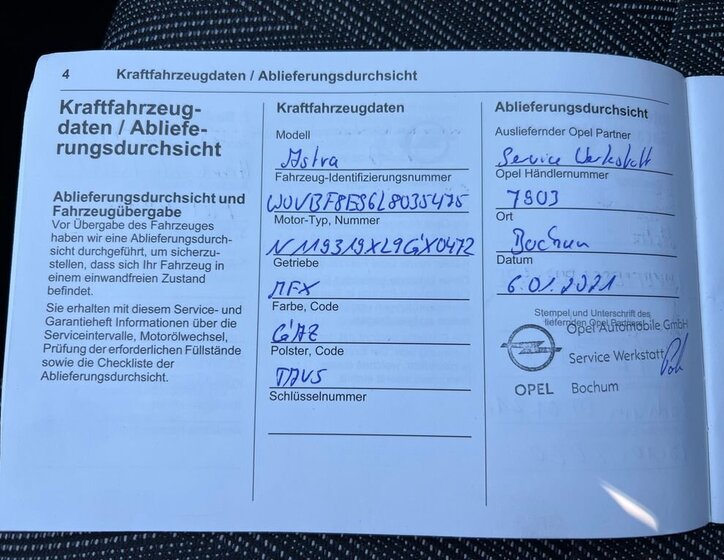 4 Kraftfahrzeugdaten / Ablieferungsdurchsicht
Kraftfahrzeug-
daten / Abliefe-
rungsdurchsicht
Ablieferungsdurchsicht und
Fahrzeugübergabe
Vor Übergabe des Fahrzeuges
haben wir eine Ablieferungsdurch-
sicht durchgeführt, um sicherzu-
stellen, dass sich Ihr Fahrzeug in
einem einwandfreien Zustand
befindet.
Sie erhalten mit diesem Service- und
Garantieheft Informationen über die
Serviceintervalle, Motorölwechsel,
Prüfung der erforderlichen Füllstände
sowie die Checkliste der
Ablieferungsdurchsicht.
Kraftfahrzeugdaten
Modell
Astra
Fahrzeug-Identifizierungsnummer
W0VBF8ES6L8035475
Motor-Typ, Nummer
Getriebe
MFX
Farbe, Code
GAZ
Polster, Code
Schlüsselnummer
Ablieferungsdurchsicht
Ausliefernder Opel Partner
Service Werkstatt
Opel Händlernummer
7903
Ort
Bochum
Datum
6.01.2021
Stempel und Unterschrift des
liefernden Opel Partners
Opel Automobile GmbH
Service Werkstatt
OPEL Bochum